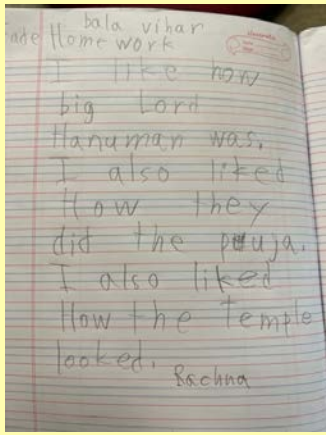 bala vihar
Home work
I like how
big Lord
Hanuman was.
I also liked
How they
did the puja.
I also liked
How the Temple
looked.
Rachna